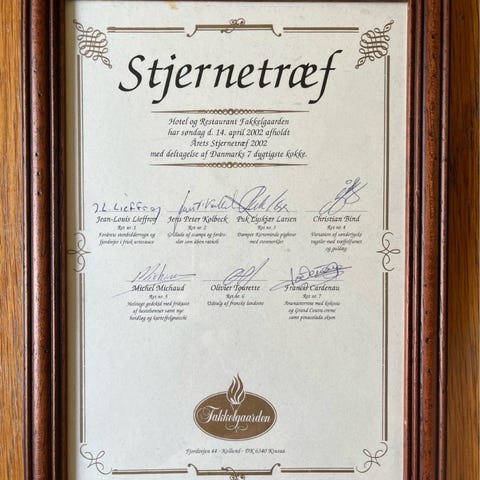 Stjernetræf
Hotel og Restaurant Fakkelgaarden
har søndag d. 14. april 2002 afholdt
Årets Stjernetræf 2002
med deltagelse af Danmarks 7 dygtigste kokke.
J.L. Lieffroy
Jean-Louis Lieffroy Jens Peter Kolbeck Puk Lyskjær Larsen Christian Bind
Ret nr. 1 Ret nr. 2 Ret nr. 3 Ret nr. 4
Forårets stenbidderrogn og Grillade af scampi og fordrs- Dampet Kerteminde pighvar Variation af sønderjysk
fjordrejer i frisk urtesauce sler som åben ravioli med svømmerkler ungeler med trøffelflanet
og gulding
Michel Michaud Olivier Tourette Francis Cardenau
Ret nr. 5 Ret nr. 6 Ret nr. 7
Helstegt gedekid med frikassé Udvalg af franske landoste Ananasterrine med kokosis
af hestebønner samt nye og Grand Couva creme
hvidløg og kartoffelgnocchi samt pinacolada skum
Fakkelgaarden
Fjordvejen 44 · Kollund · DK 6340 Krusaa